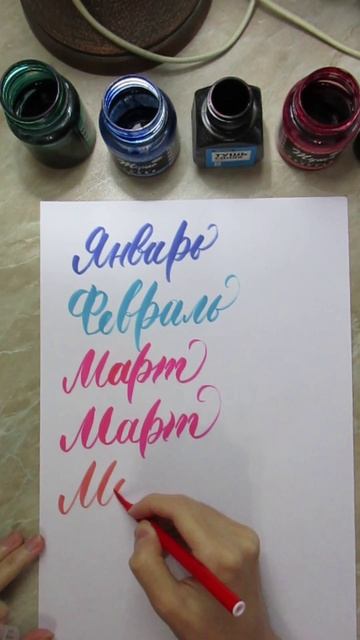 ТУШЬ
Январь
Февраль
Март
Март
М